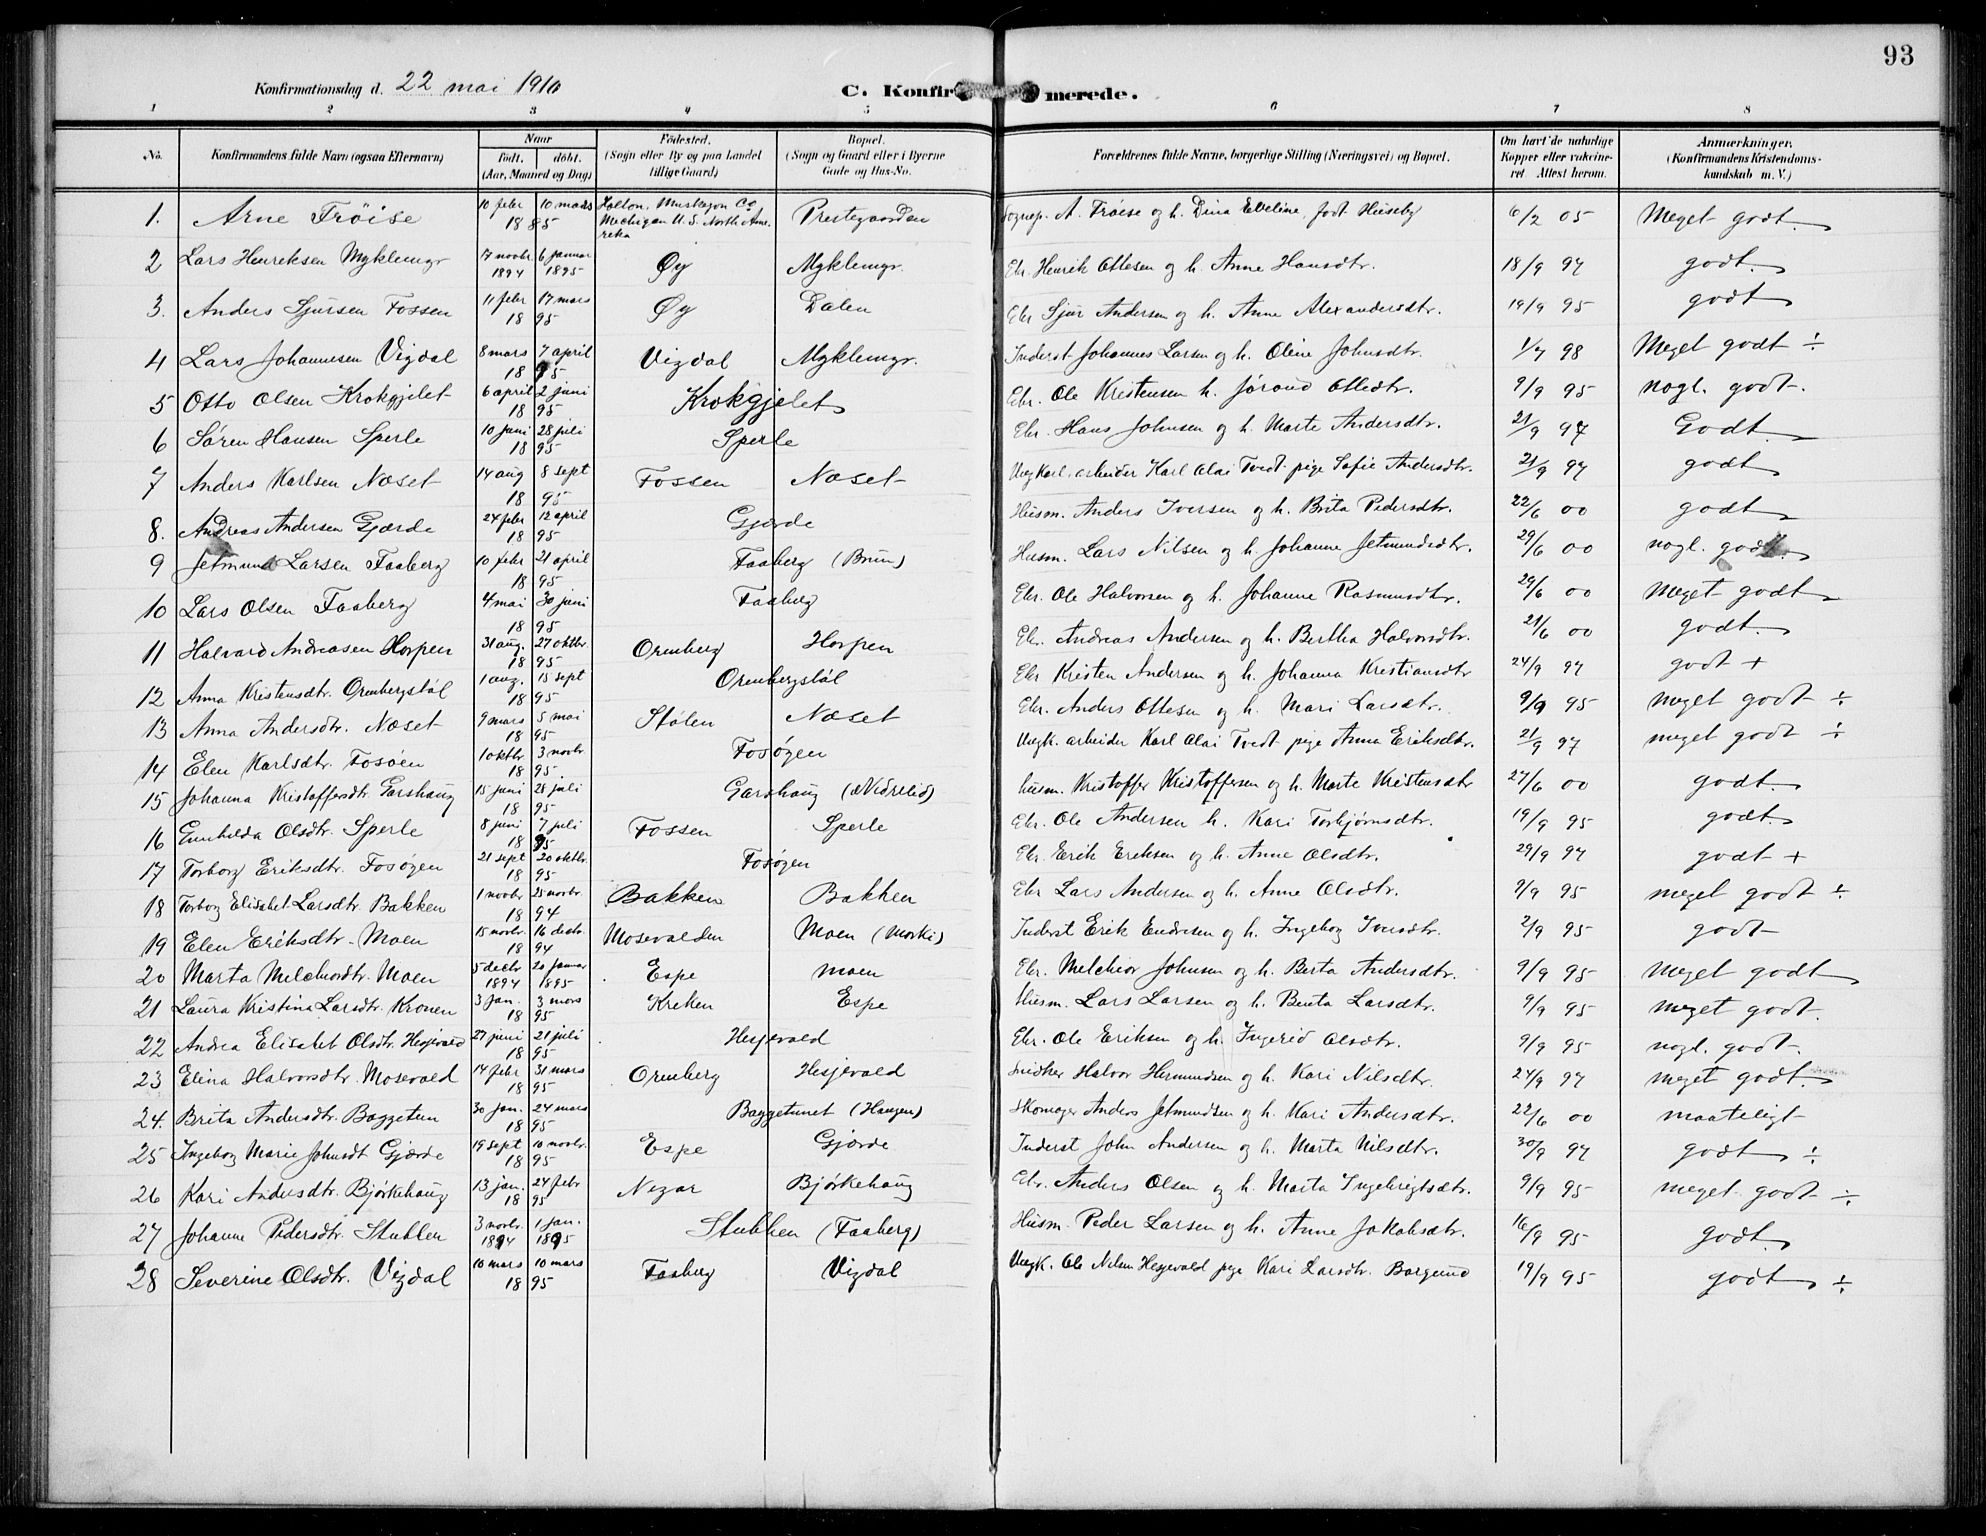 93
Konfirmationsdag d. 22 mai 1910 C. Konfirmerede.
1 2 3 4 5 6 7 8
No. Konfirmandens fulde Navn (ogsaa Efternavn) Naar født. døbt. (Aar, Maaned og Dag) Fødested. (Sogn eller By og paa Landet tillige Gaard) Bopæl. (Sogn og Gaard eller i Byerne Gade og Hus-No. Forældrenes fulde Navne, borgerlige Stilling (Næringsvei) og Bopæl. Om havt de naturlige Kopper eller vakcineret. Attest herom. Anmærkninger. (Konfirmandens Kristendomskundskab m. V.)
1. Arne Fröise 10 febr 10 mars 1885 Holton, Muskegon Co Mechigan U.S. North Amerika Prestegaarden Sognep. A. Fröise og h. Dina Eveline, født Huseby 6/2 05 Meget godt.
2 Lars Henriksen Myklemyr 17 novbr 1894 6 januar 1895 Øy Myklemyr. Ebr. Henrik Ottesen og h. Anne Hansdtr. 18/9 97 godt.
3. Anders Sjursen Fossen 11 febr 17 mars 1895 Øy Dalen Ebr Sjur Andersen og h. Anne Alexandersdtr. 19/9 95 godt
4 Lars Johannesen Vigdal 8 mars 7 april 1895 Vigdal Myklemyr. Inderst Johannes Larsen og h. Oline Johnsdtr. 1/7 98 Meget godt ÷
5 Otto Olsen Krokgjelet 6 april 2 juni 1895 Krokgjelet Ebr. Ole Kristensen h. Jørand Ottedtr. 9/9 95 nogl. godt.
6 Søren Hansen Sperle 10 juni 28 juli 1895 Sperle Ebr. Hans Johnsen og h. Marte Andersdtr. 21/9 97 Godt
7 Anders Karlsen Næset 14 aug 8 sept 1895 Fossen Næset Ungkarl, arbeider Karl Olai Tvedt pige Sofie Andersdtr. 21/9 97 godt
8. Andreas Andersen Gjærde 24 febr 12 april 1895 Gjærde Husm. Anders Iversen og h. Brita Pedersdtr. 22/6 00 godt
9 Jetmund Larsen Faaberg 10 febr 21 april 1895 Faaberg (Brun) Husm. Lars Nilsen og h. Johanne Jetmundsdtr. 29/6 00 nogl. godt.
10 Lars Olsen Faaberg 4 mai 30 juni 1895 Faaberg Ebr. Ole Halvorsen og h. Johanne Rasmusdtr. 29/6 00 Meget godt
11 Halvard Andreasen Horpen 31 aug. 27 oktbr. 1895 Ormberg Horpen Eb. Andreas Andersen og h. Bertha Halvorsdtr. 21/6 00 godt.
12 Anna Kristensdtr. Ormbergstøl 1 aug. 15 sept 1895 Ormbergstøl Ebr Kristen Andersen og h. Johanna Kristiansdtr 24/9 97 godt +
13 Anna Andersdtr. Næset 9 mars 5 mai 1895 Stølen Næset Ebr. Anders Ottesen og h. Mari Larsdtr. 9/9 95 meget godt ÷
14 Elen Karlsdtr. Fosøen 1 oktbr 3 novbr 1895. Fosøgen Ungk. arbeider Karl Olai Tvedt pige Anna Eriksdtr. 21/9 97 meget godt ÷
15 Johanna Kristoffersdtr. Garshaug 15 juni 28 juli 1895 Garshaug (Nidrelid) husm. Kristoffer Kristoffersen og h. Marte Kristensdtr 27/6 00 godt.
16 Gunhilda Olsdtr. Sperle 8 juni 7 juli 1895 Fossen Sperle Ebr. Ole Andersen h. Kari Torbjørnsdtr. 19/9 95 godt.
17 Torborg Eriksdtr. Fosøgen 21 sept 20 oktbr. 1895 Fosøgen Ebr. Erik Eriksen og h. Anne Olsdtr. 29/9 97 godt +
18 Torborg Elisabet Larsdtr. Bakken 1 novbr 25 novbr. 1894 Bakken Bakken Ebr Lars Andersen og h. Anne Olsdtr. 9/9 95 meget godt ÷
19 Elen Eriksdtr. Moen 15 novbr. 16 decbr. 1894 Mosevolden Moen (Morki) Inderst Erik Endresen og h. Ingeborg Iversdtr. 2/9 95 godt
20 Marta Melchiordtr. Moen 5 decbr 1894 20 januar 1895 Espe moen Ebr. Melchior Johnsen og h. Berta Andersdtr. 9/9 95 Meget godt
21 Laura Kristina Larsdtr. Kronen 3 jan. 3 mars 1895 Kreken Espe Husm. Lars Larsen og h. Benta Larsdtr. 9/9 95 meget godt.
22 Andrea Elisabet Olsdtr. Hesjevold 27 juni 21 juli 1895 Hesjevold Ebr. Ole Eriksen og h. Ingerid Olsdtr. 9/9 95 nogl. godt.
23 Elina Halvorsdtr. Mosevold 14 febr 31 mars 1895 Ormberg Hesjevold Snidker Halvor Hermundsen og h. Kari Nilsdtr. 24/9 97 meget godt.
24. Brita Andersdtr. Baggetun 30 jan. 24 mars 1895 Baggetunet (Haugen) Skomager Anders Jetmundsen og h. Kari Andersdtr. 22/6 00 maateligt
25 Ingeborg Marie Johnsdt Gjærde 19 sept 10 novbr. 1895 Espe Gjørde Inderst John Andersen og h. Marta Nilsdtr. 30/9 97 godt ÷
26 Kari Andersdtr. Bjørkehaug 13 jan. 24 febr 1895 Nygar Bjørkehaug Ebr. Anders Olsen og h. Marta Ingebrigtsdtr. 9/9 95 meget godt ÷
27 Johanne Pedersdtr. Stubben 3 novbr. 1894 1 jan. 1895 Stubben (Faaberg) Husm. Peder Larsen og h. Anne Jakobsdtr. 16/9 95 godt.
28 Severine Olsdtr. Vigdal 10 mars 10 mars 1895 Faaberg Vigdal Ungk. Ole Nilsen Hesjevold pige Kari Larsdtr. Borgund 19/9 95 godt ÷